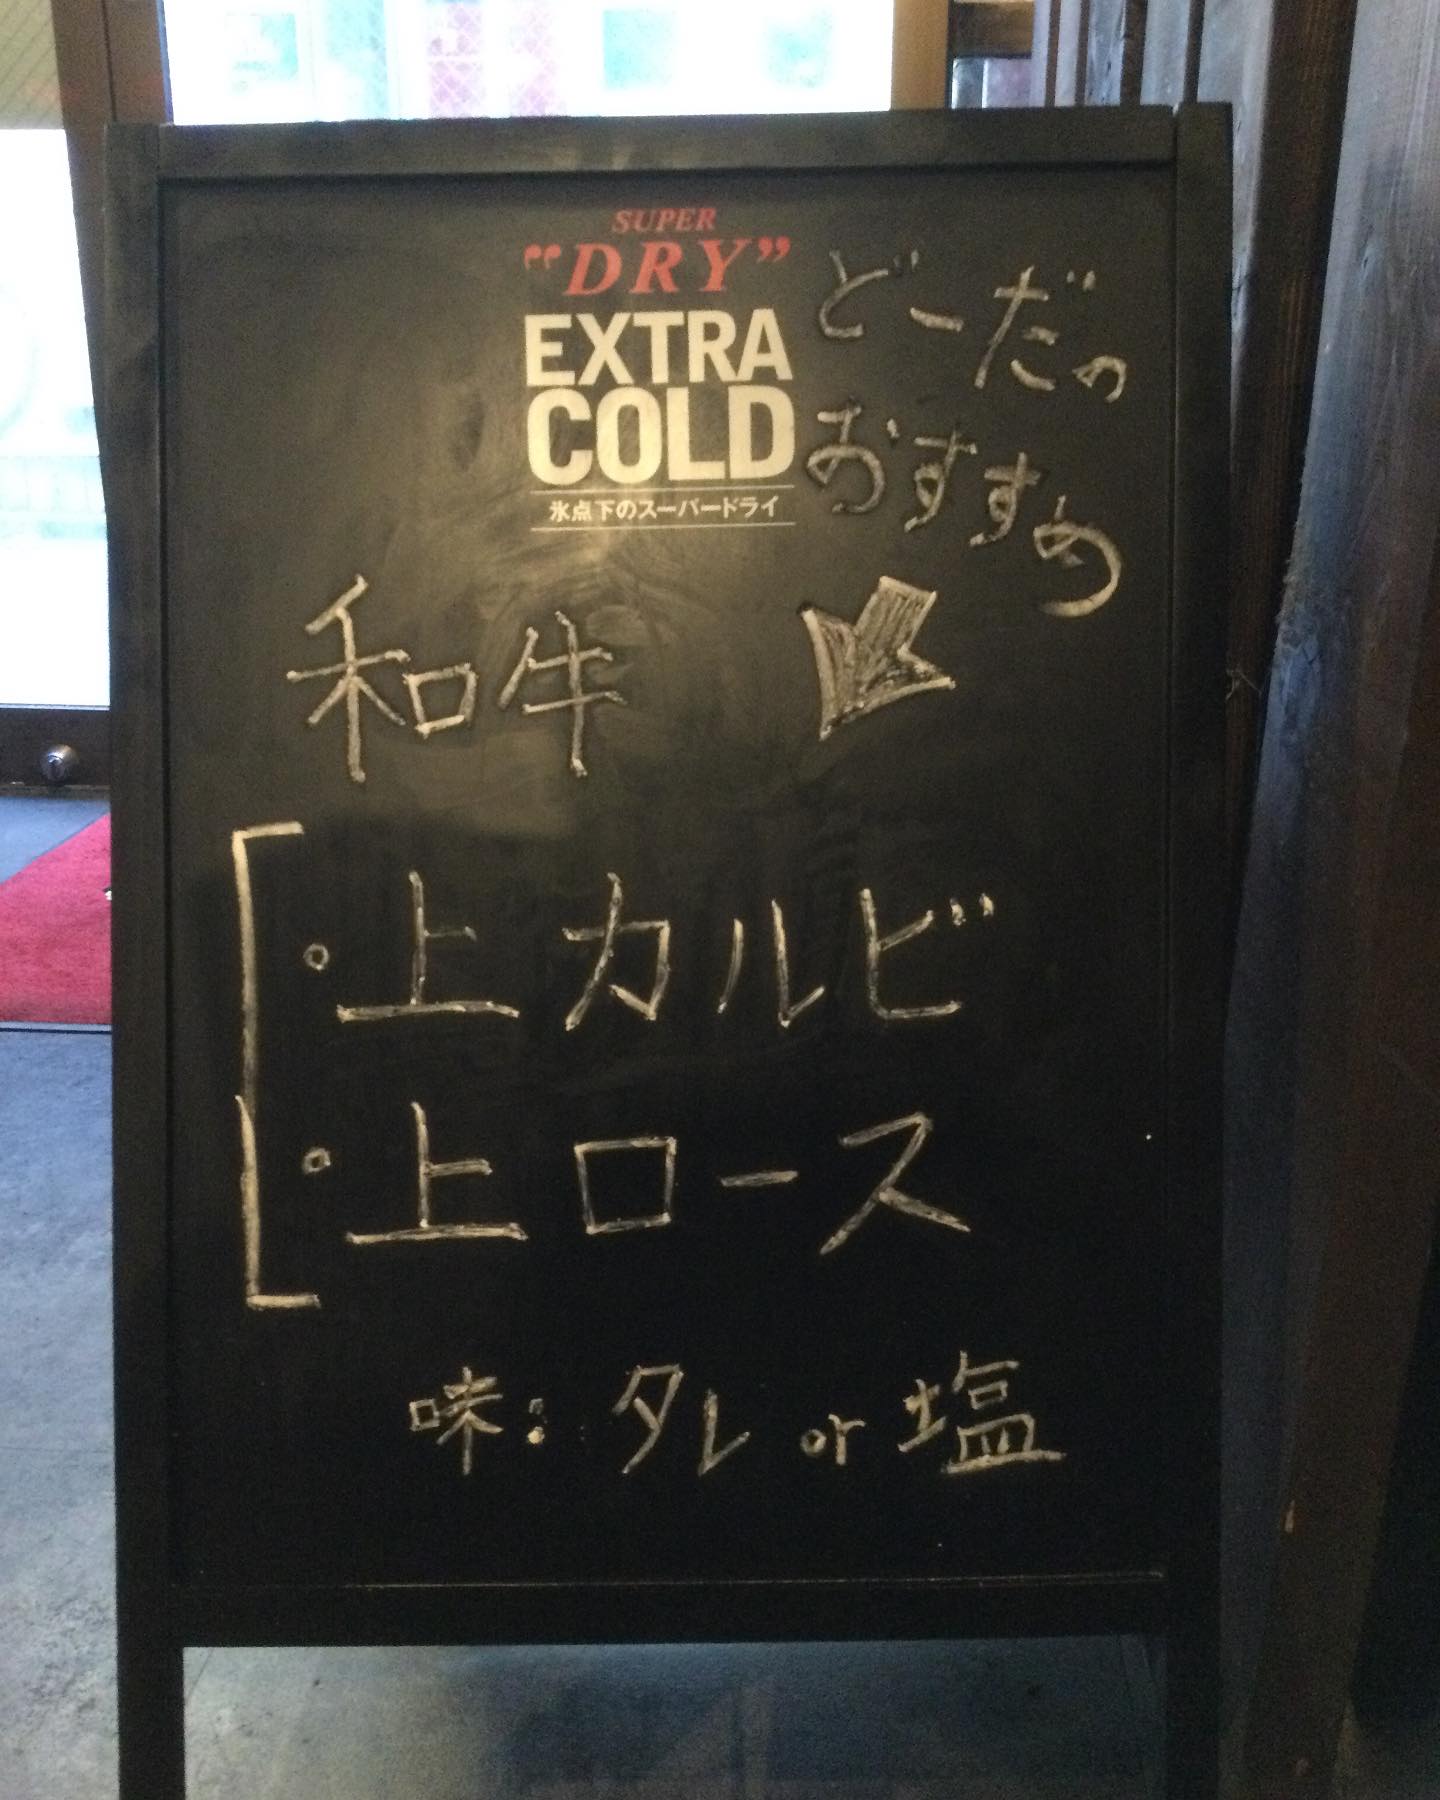 SUPER
"DRY"
EXTRA
COLD
氷点下のスーパードライ
どーだの
おすすめ
和牛
。上カルビ
。上ロース
味:タレ or 塩